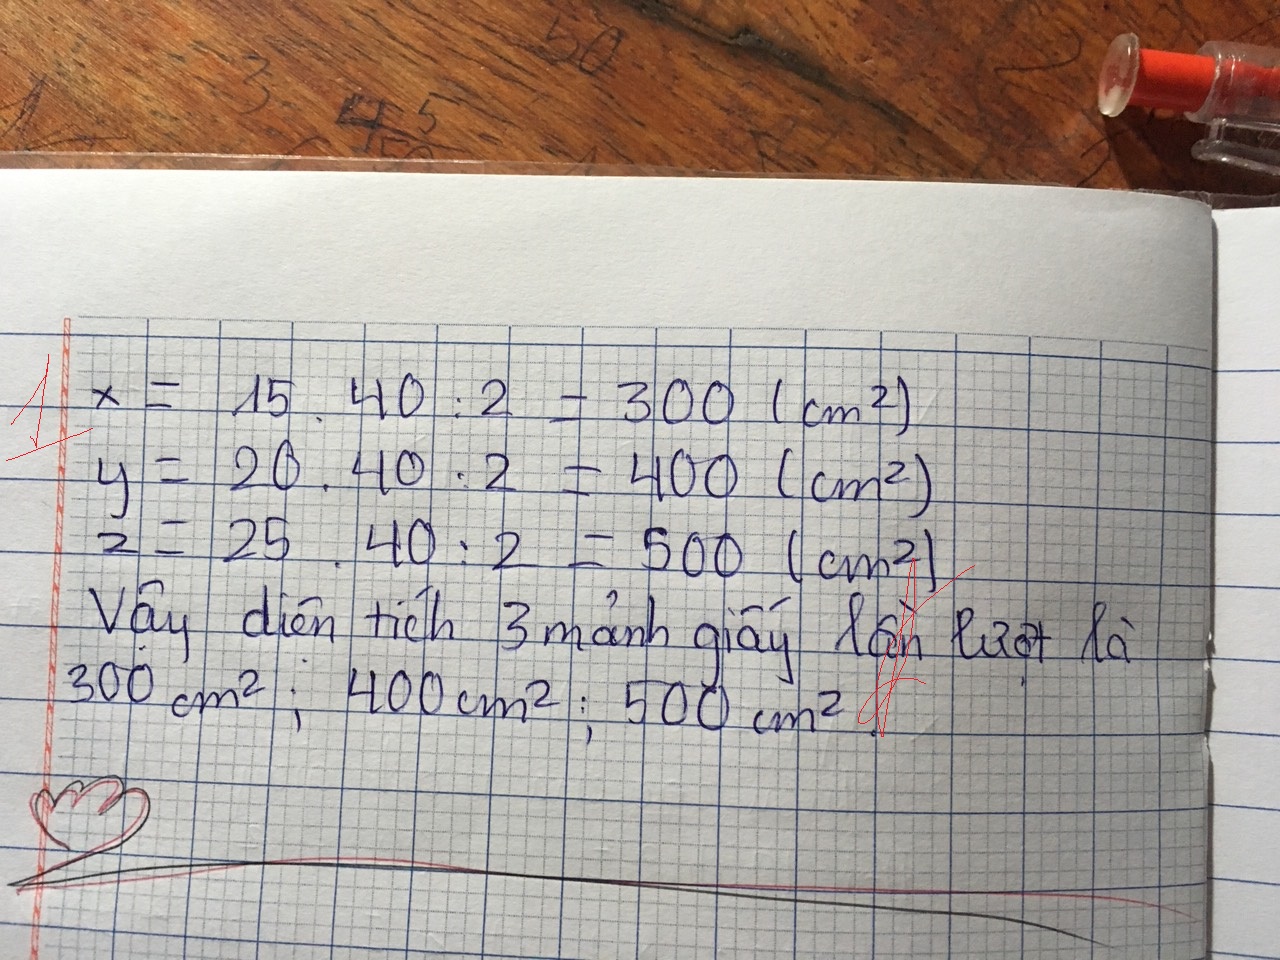 50
3
45
1
x = 15 . 40 : 2 = 300 (cm²)
y = 20 . 40 : 2 = 400 (cm²)
z = 25 . 40 : 2 = 500 (cm²)
Vậy diện tích 3 mảnh giấy lần lượt là
300 cm² ; 400 cm² ; 500 cm² .